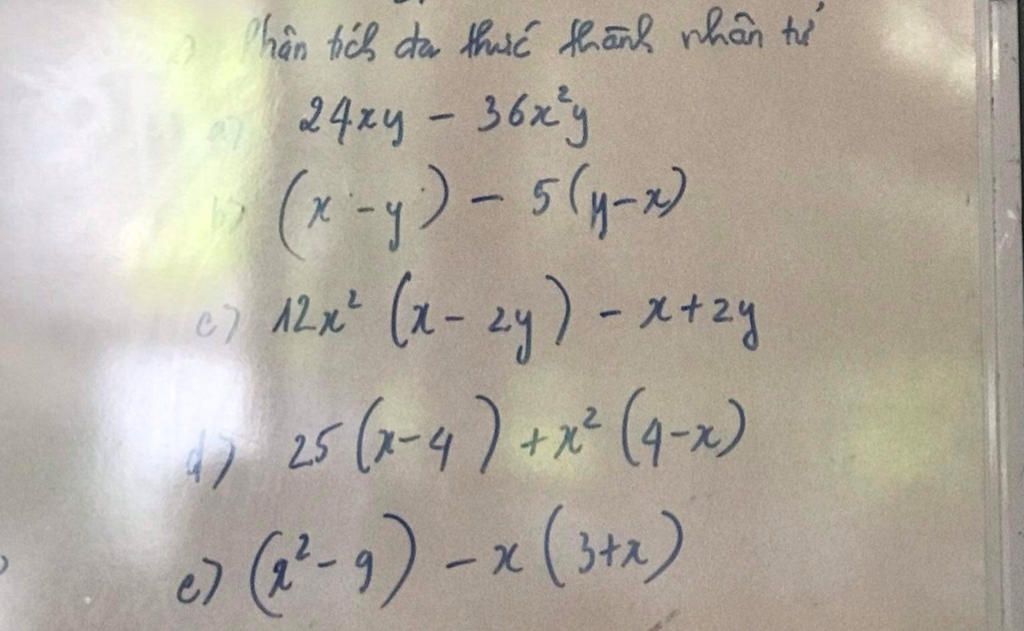 Phân tích đa thức thành nhân tử
a) 24xy - 36x²y
b) (x - y) - 5(y-x)
c) 12x² (x - 2y) - x + 2y
d) 25 (x-4) + x² (4-x)
e) (x² - 9) - x (3+x)